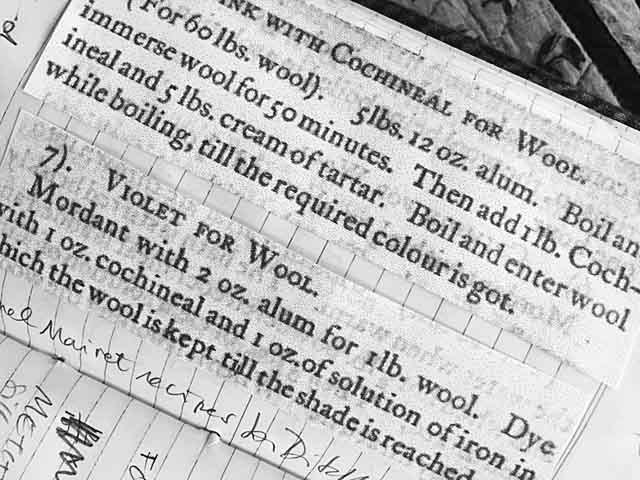 INK WITH COCHINEAL FOR WOOL.
(For 60 lbs. wool). 5lbs. 12 oz. alum. Boil an
immerse wool for 50 minutes. Then add 1lb. Coch-
ineal and 5 lbs. cream of tartar. Boil and enter wool
while boiling, till the required colour is got.
7). VIOLET FOR WOOL.
Mordant with 2 oz. alum for 1lb. wool. Dye
with 1 oz. cochineal and 1 oz. of solution of iron in
hich the wool is kept till the shade is reached
Mairet recipes for